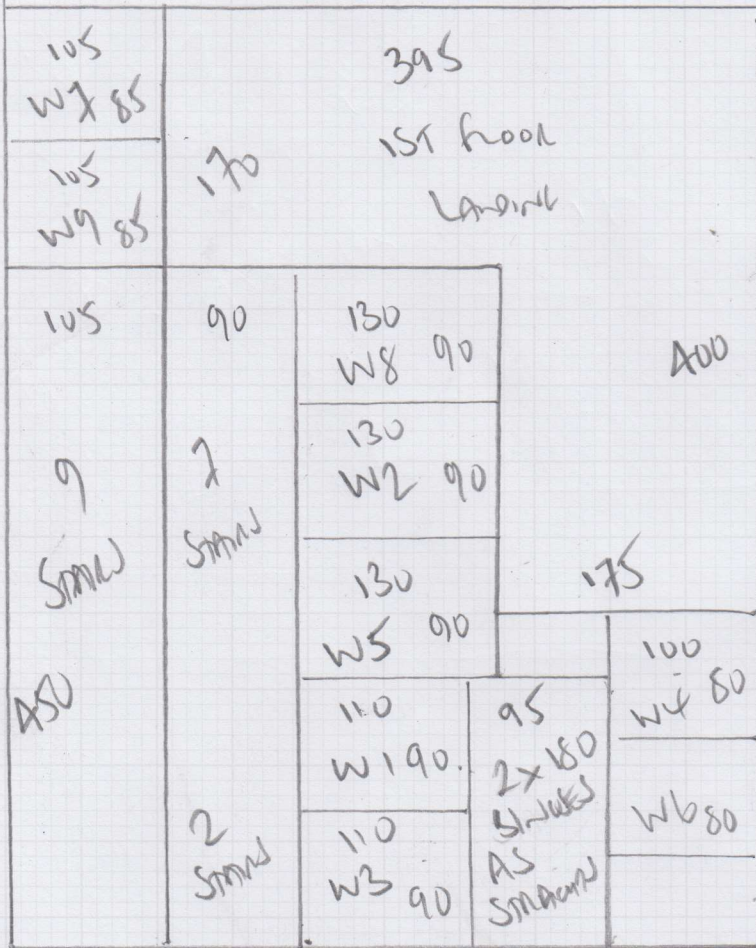 105
W7 85
105
W9 85
170
395
1ST FLOOR
LANDING
105
9
STAIRS
450
90
7
STAIRS
2
STAIRS
130
W8 90
130
W2 90
130
W5 90
110
W1 90.
110
W3 90
400
175
95
2 x 180
AS
100
W4 80
W6 80